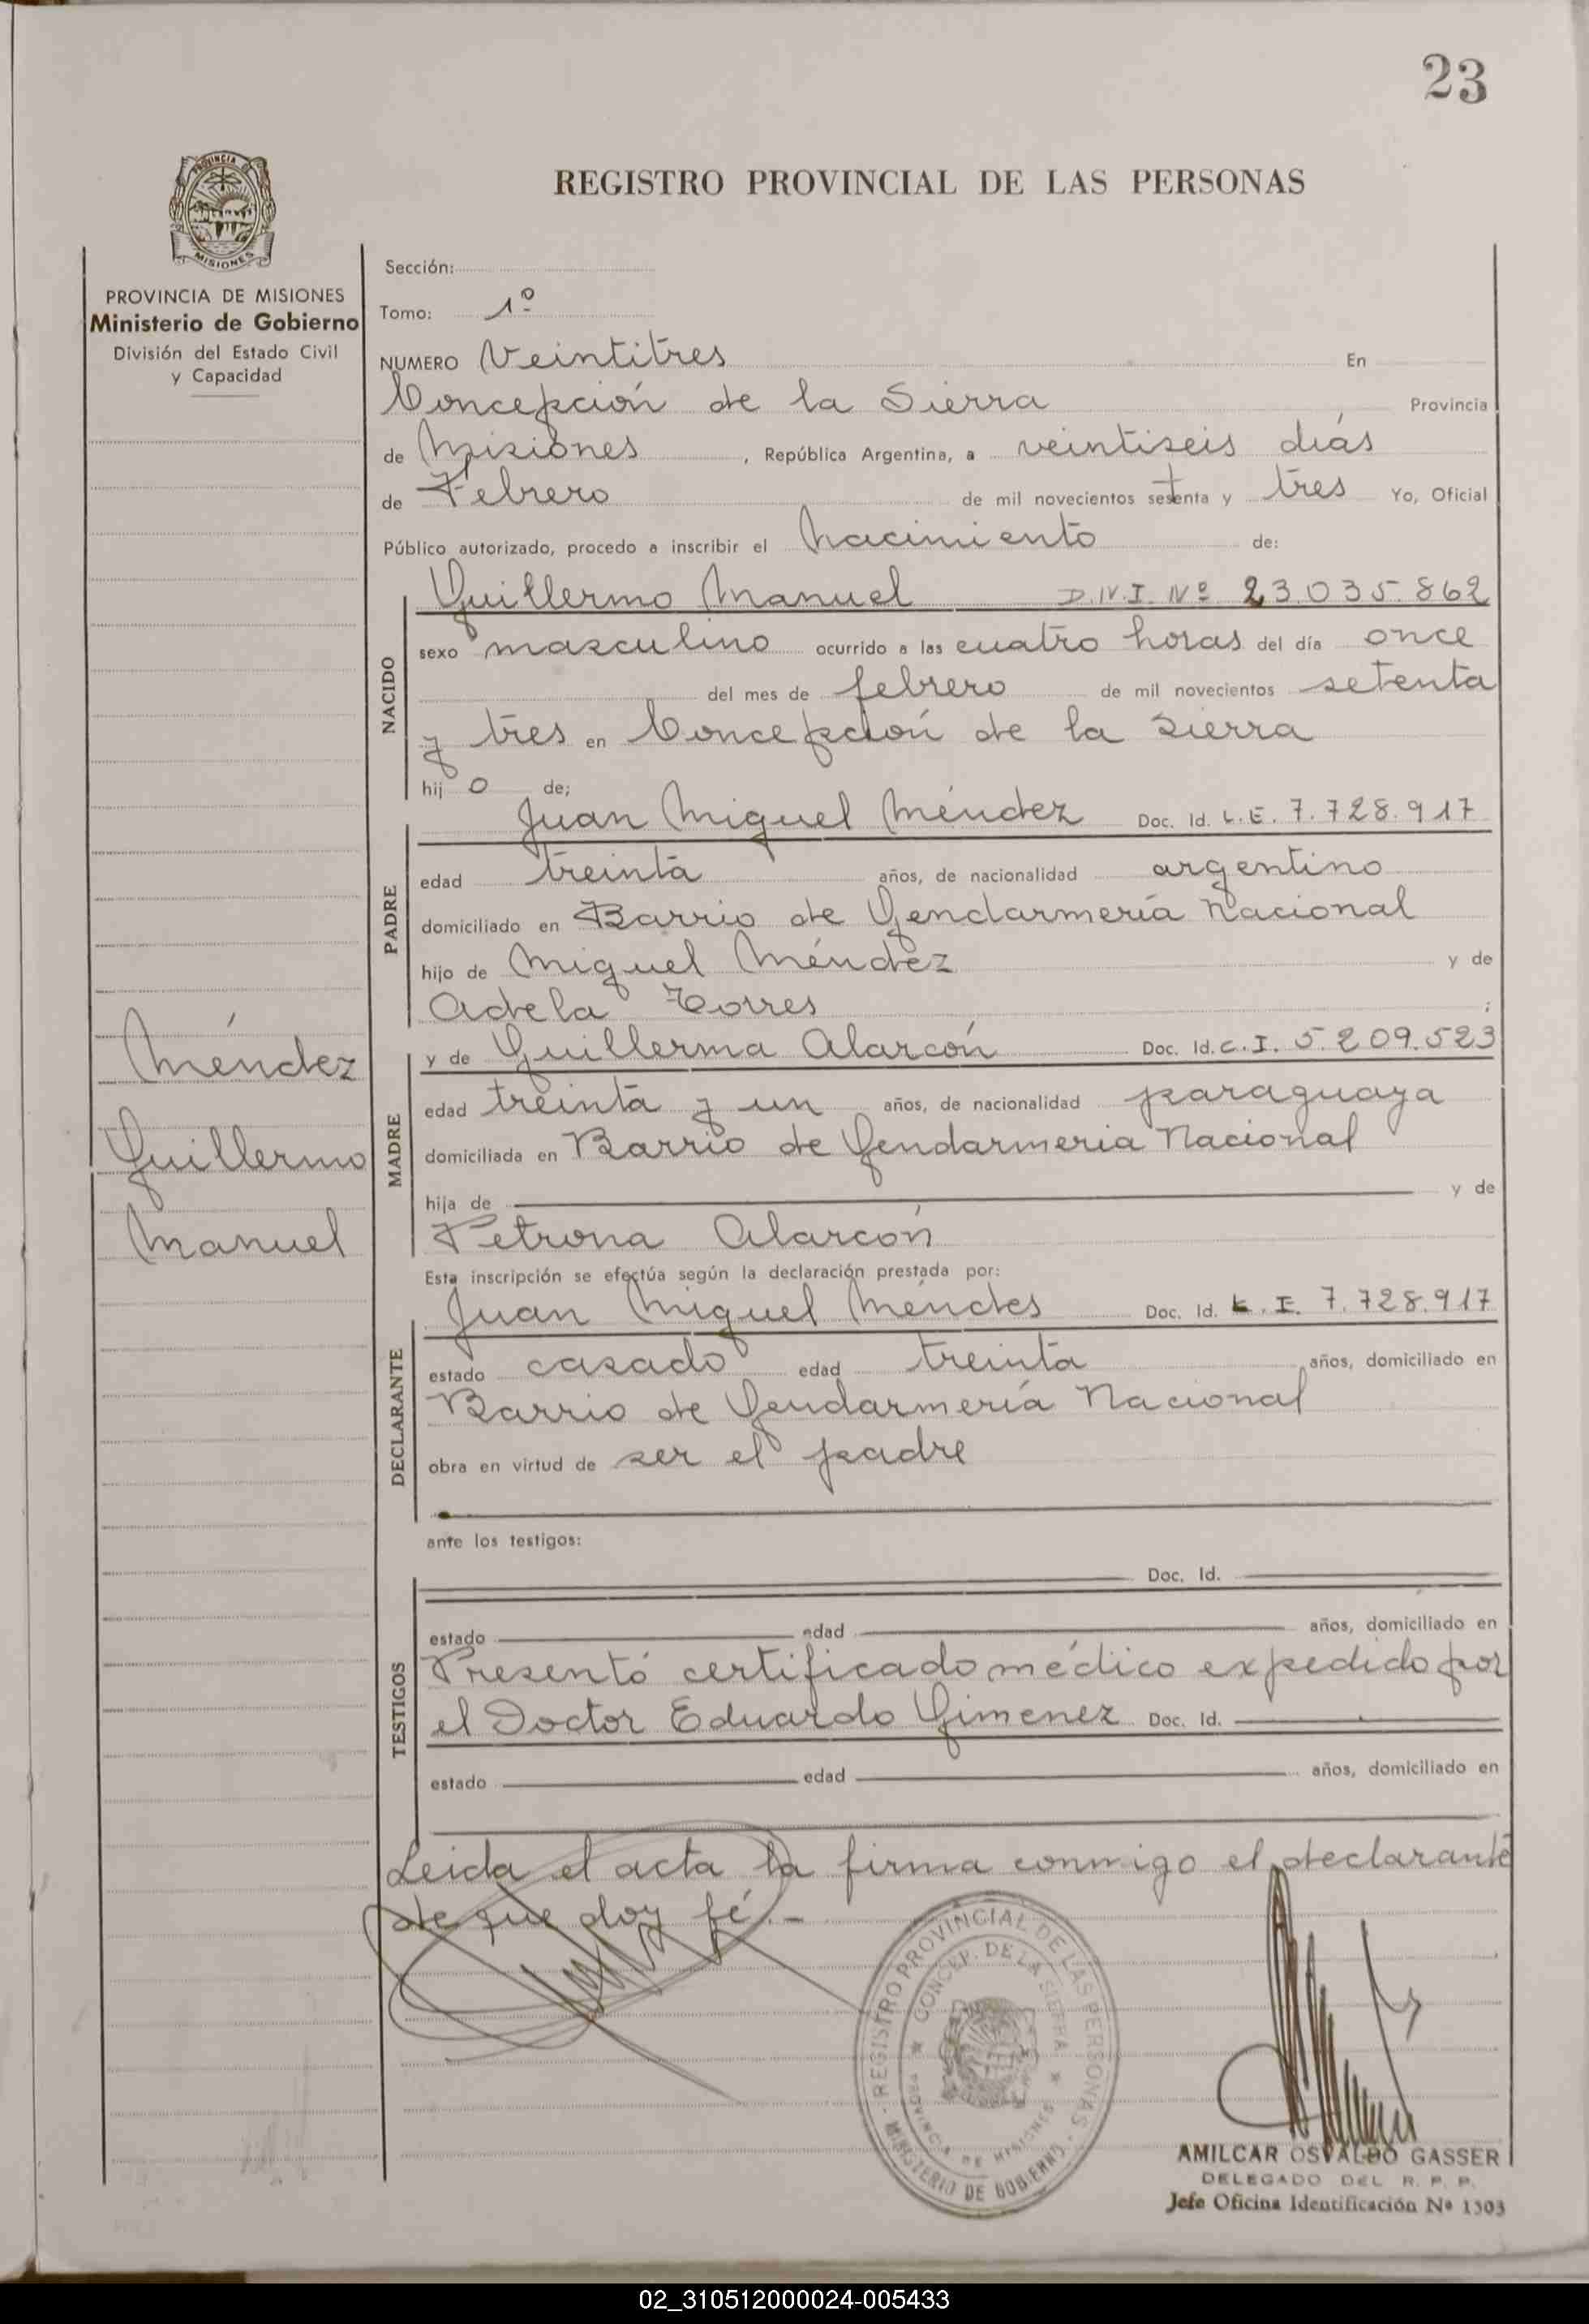 23
REGISTRO PROVINCIAL DE LAS PERSONAS
PROVINCIA DE MISIONES
PROVINCIA DE MISIONES
Ministerio de Gobierno
División del Estado Civil
y Capacidad
Sección:
Tomo: 1º
NUMERO Veintitres En
Concepción de la Sierra Provincia
de Misiones , República Argentina, a veintiseis días
de Febrero de mil novecientos setenta y tres Yo, Oficial
Público autorizado, procedo a inscribir el Nacimiento de:
NACIDO
Guillermo Manuel D.N.I. Nº 23.035.862
sexo masculino ocurrido a las cuatro horas del día once
del mes de febrero de mil novecientos setenta
y tres en Concepción de la Sierra
hij o de;
PADRE
Juan Miguel Méndez Doc. Id. L.E. 7.728.917
edad treinta años, de nacionalidad argentino
domiciliado en Barrio de Gendarmería Nacional
hijo de Miguel Méndez y de
Adela Torres ;
MADRE
y de Guillerma Alarcón Doc. Id. C.I. 5.209.523
edad treinta y un años, de nacionalidad paraguaya
domiciliada en Barrio de Gendarmeria Nacional
hija de y de
Petrona Alarcón
Méndez
Guillermo
Manuel
Esta inscripción se efectúa según la declaración prestada por:
DECLARANTE
Juan Miguel Méndes Doc. Id. L.E. 7.728.917
estado casado edad treinta años, domiciliado en
Barrio de Gendarmería Nacional
obra en virtud de ser el padre
ante los testigos:
TESTIGOS
Doc. Id.
estado edad años, domiciliado en
Presentó certificado médico expedido por
el Doctor Eduardo Gimenez Doc. Id.
estado edad años, domiciliado en
Leida el acta la firma conmigo el declarante
de que doy fé.-
REGISTRO PROVINCIAL DE LAS PERSONAS - MINISTERIO DE GOBIERNO
CONCEP. DE LA SIERRA
PROVINCIA DE MISIONES
AMILCAR OSVALDO GASSER
DELEGADO DEL R. P. P.
Jefe Oficina Identificación Nº 1303
02_310512000024-005433